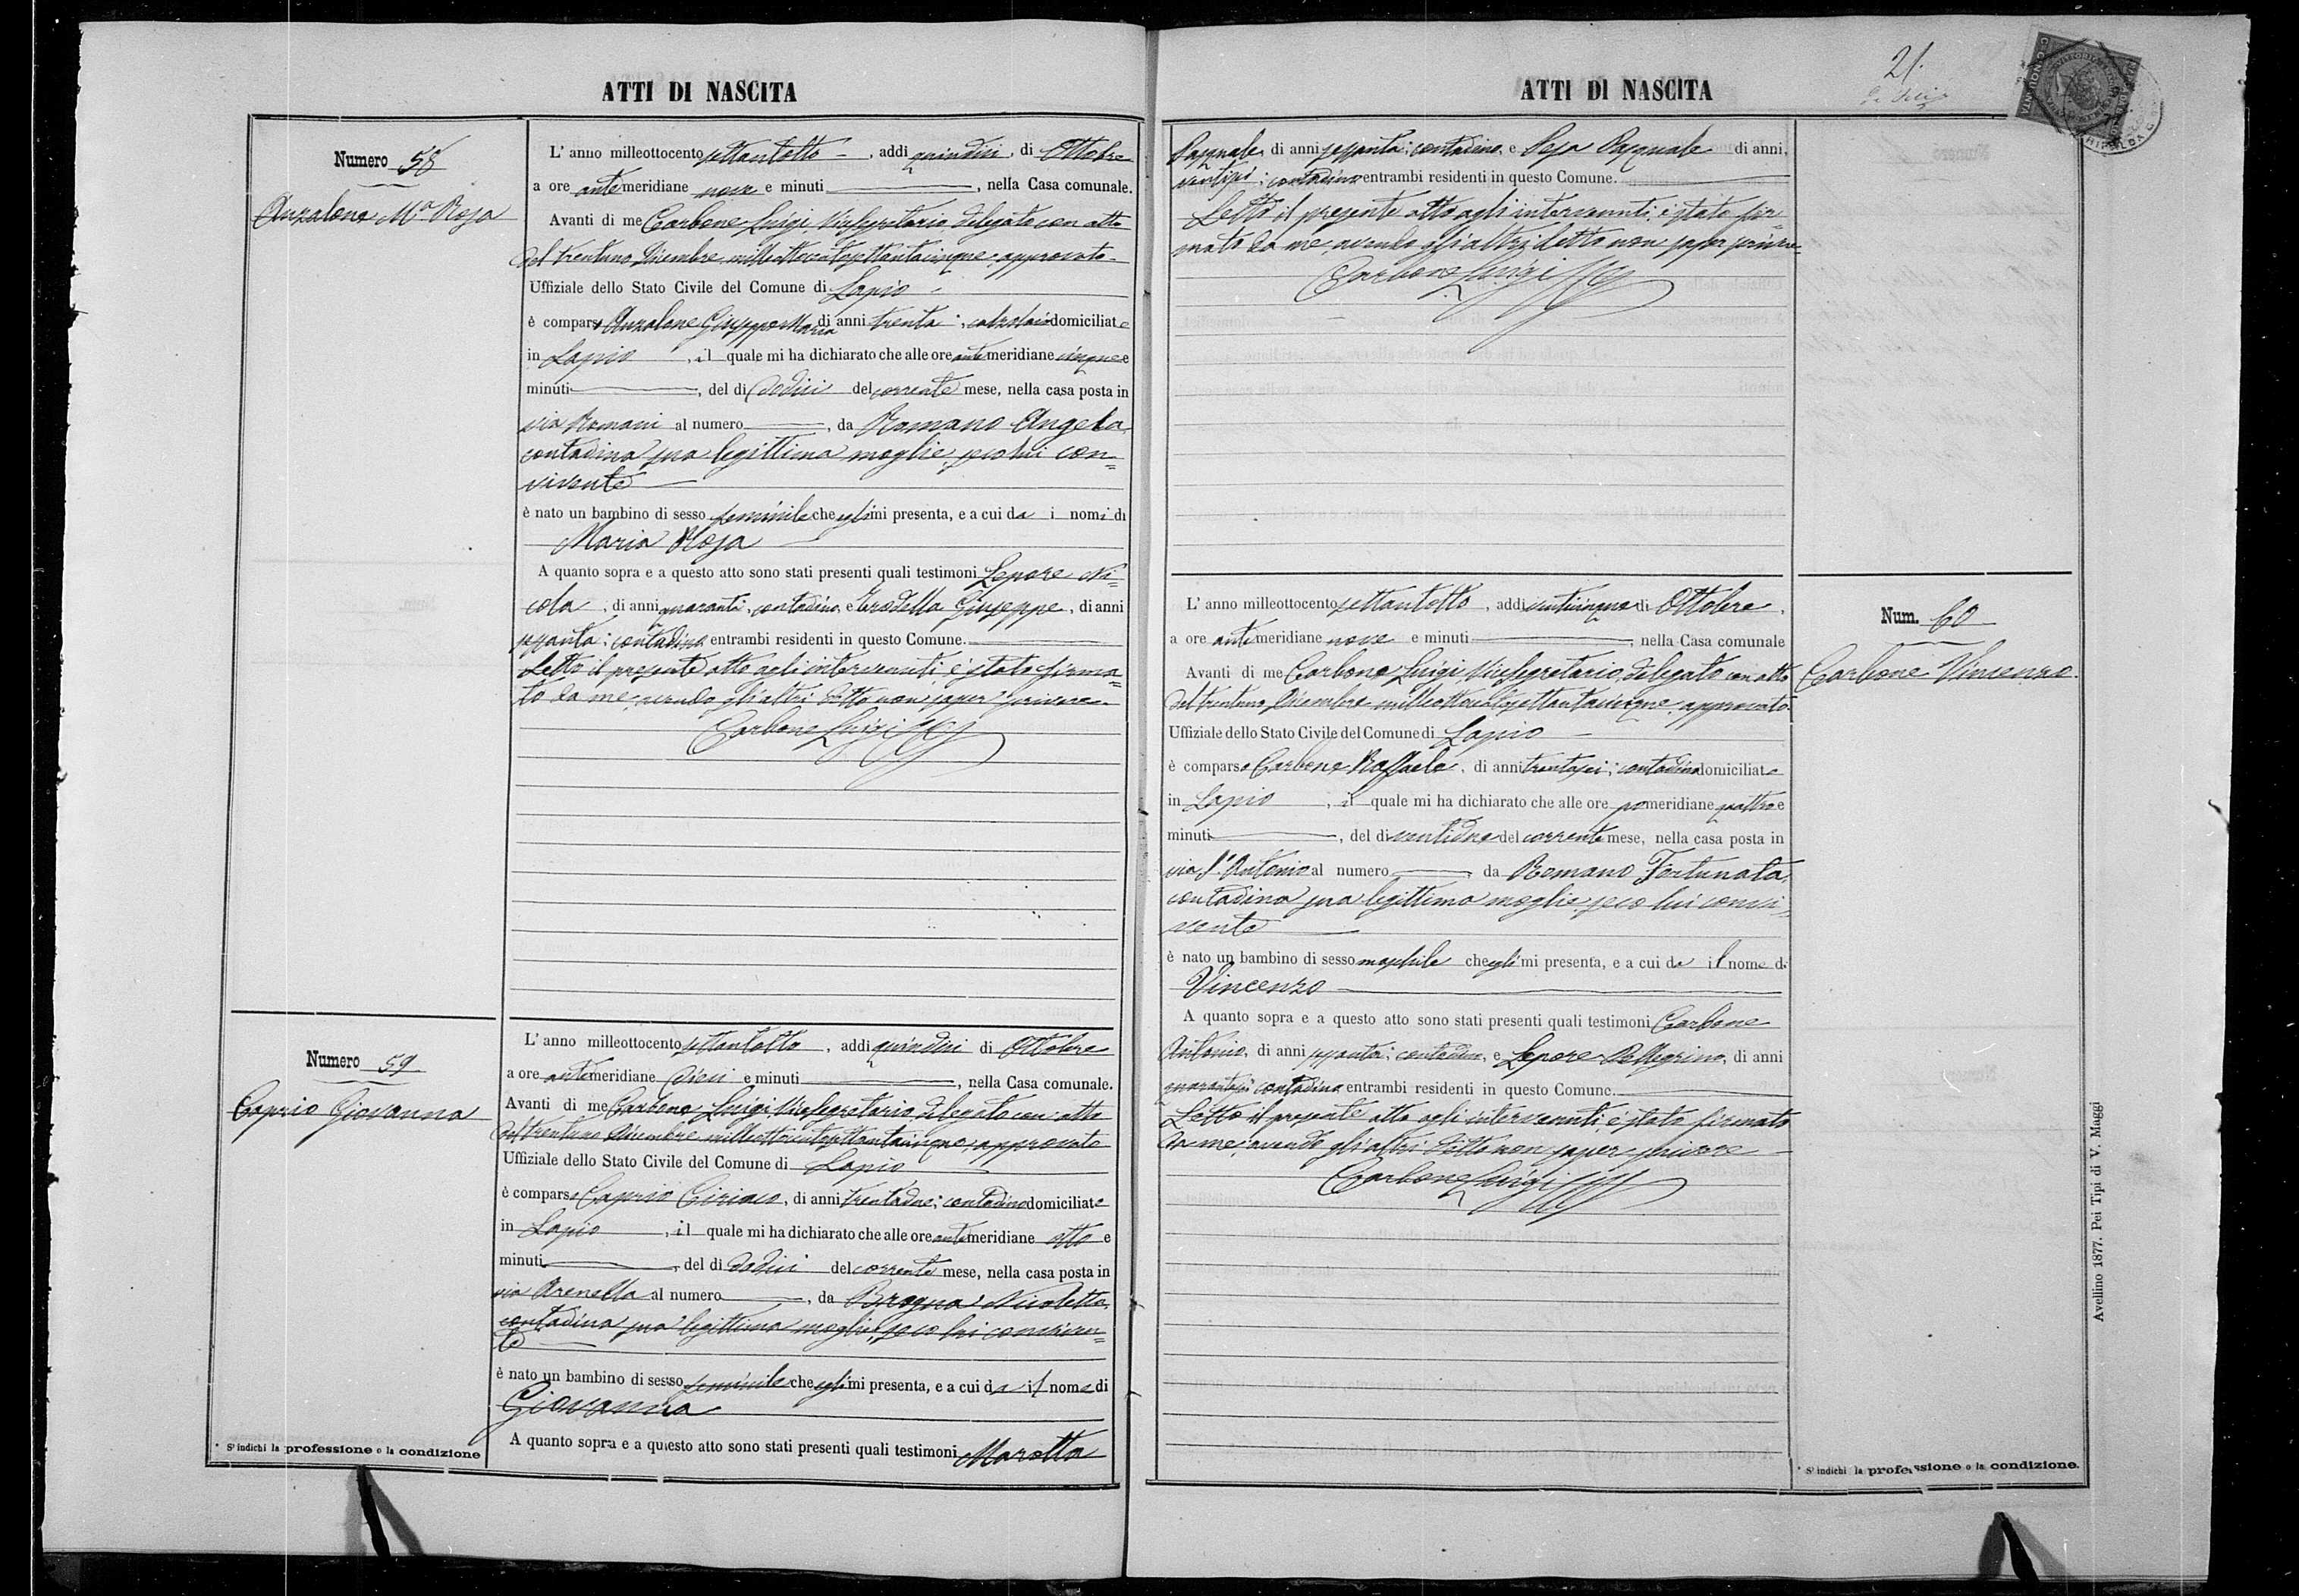 ATTI DI NASCITA
Numero 58
Anzalone M.a Rosa
L' anno milleottocento settantotto, addi quindici, di Ottobre
a ore antemeridiane nove e minuti , nella Casa comunale.
Avanti di me Carbone Luigi, Vicesegretario, delegato con atto
del trentuno Dicembre milleottocentosettantacinque, approvato
Uffiziale dello Stato Civile del Comune di Lapio
è comparso Anzalone Giuseppe Maria di anni trenta; calzolaio domiciliato
in Lapio , il quale mi ha dichiarato che alle ore antemeridiane cinque e
minuti , del di dodici del corrente mese, nella casa posta in
via Romani al numero , da Romano Angela,
contadina sua legittima moglie, seco lui con=
vivente
è nato un bambino di sesso feminile che egli mi presenta, e a cui da i nomi di
Maria Rosa
A quanto sopra e a questo atto sono stati presenti quali testimoni Lepore Ni=
cola, di anni quaranta; contadino, e Giuseppe, di anni
sessanta; contadino entrambi residenti in questo Comune.
Letto il presente atto agli intervenuti, è stato firma=
to da me, avendo gli altri detto non saper scrivere.
Carbone Luigi
Numero 59
Caprio Giovanna
L' anno milleottocento settantotto, addi quindici di Ottobre
a ore antemeridiane dieci e minuti , nella Casa comunale.
Avanti di me Carbone Luigi Vicesegretario delegato con atto
del trentuno Dicembre milleottocentosettantacinque, approvato
Uffiziale dello Stato Civile del Comune di Lapio
è comparso Caprio Ciriaco, di anni trentadue; contadino domiciliato
in Lapio , il quale mi ha dichiarato che alle ore antemeridiane otto e
minuti , del di dodici del corrente mese, nella casa posta in
via Arenella al numero , da Brogna Nicoletta,
contadina sua legittima moglie, seco lui conviven=
te
è nato un bambino di sesso feminile che egli mi presenta, e a cui da il nome di
Giovanna
A quanto sopra e a questo atto sono stati presenti quali testimoni Marotta
* S' indichi la professione o la condizione
ATTI DI NASCITA
21.
Pasquale, di anni sessanta; contadino, e Pasquale di anni,
ventisei; contadino entrambi residenti in questo Comune.
Letto il presente atto agli intervenuti, è stato fir=
mato da me, avendo gli altri detto non saper scrivere.
Carbone Luigi
Num. 60
Carbone Vincenzo
L' anno milleottocento settantotto, addi venticinque di Ottobre,
a ore antemeridiane nove e minuti , nella Casa comunale
Avanti di me Carbone Luigi, Vicesegretario, delegato con atto
del trentuno Dicembre milleottocentosettantacinque, approvato
Uffiziale dello Stato Civile del Comune di Lapio
è comparso Carbone Raffaele, di anni trentasei; contadino domiciliato
in Lapio , il quale mi ha dichiarato che alle ore pomeridiane quattro e
minuti , del di ventidue del corrente mese, nella casa posta in
via S. Antonio al numero da Romano Fortunata,
contadina sua legittima moglie, seco lui convi=
vente
è nato un bambino di sesso maschile che egli mi presenta, e a cui da il nome di
Vincenzo
A quanto sopra e a questo atto sono stati presenti quali testimoni Carbone
Antonio, di anni sessanta; contadino, e Lepore Pellegrino, di anni
quarantasei contadino entrambi residenti in questo Comune.
Letto il presente atto agli intervenuti, è stato firmato
da me, avendo gli altri detto non saper scrivere
Carbone Luigi
* S' indichi la professione o la condizione.
Avellino 1877. Pei Tipi di V. Maggi